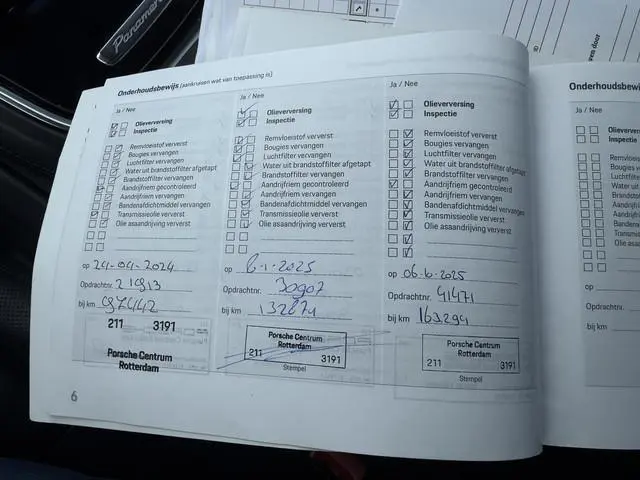 Panamera
Onderhoudsbewijs (aankruisen wat van toepassing is)
Ja / Nee
Olieverversing
Inspectie
Remvloeistof ververst
Bougies vervangen
Luchtfilter vervangen
Water uit brandstoffilter afgetapt
Brandstoffilter vervangen
Aandrijfriem gecontroleerd
Aandrijfriem vervangen
Bandenafdichtmiddel vervangen
Transmissieolie ververst
Olie asaandrijving ververst
op 24-04-2024
Opdrachtnr. 21913
bij km 97442
211 3191
Porsche Centrum
Rotterdam
6
Ja / Nee
Olieverversing
Inspectie
Remvloeistof ververst
Bougies vervangen
Luchtfilter vervangen
Water uit brandstoffilter afgetapt
Brandstoffilter vervangen
Aandrijfriem gecontroleerd
Aandrijfriem vervangen
Bandenafdichtmiddel vervangen
Transmissieolie ververst
Olie asaandrijving ververst
op 8-1-2025
Opdrachtnr. 30907
bij km
Porsche Centrum
Rotterdam
211 3191
Stempel
Ja / Nee
Olieverversing
Inspectie
Remvloeistof ververst
Bougies vervangen
Luchtfilter vervangen
Water uit brandstoffilter afgetapt
Brandstoffilter vervangen
Aandrijfriem gecontroleerd
Aandrijfriem vervangen
Bandenafdichtmiddel vervangen
Transmissieolie ververst
Olie asaandrijving ververst
op 06-6-2025
Opdrachtnr. 41471
bij km 163294
Porsche Centrum
Rotterdam
211 3191
Stempel
Onderhoudsbewi
Ja / Nee
Olieverversing
Inspectie
Remvloeistof
Bougies
Luchtfilter
Water uit
Brandstoffilter
Aandrijfriem
Aandrijfriem
Transmissieolie
op
Opdrachtnr.
bij km
door